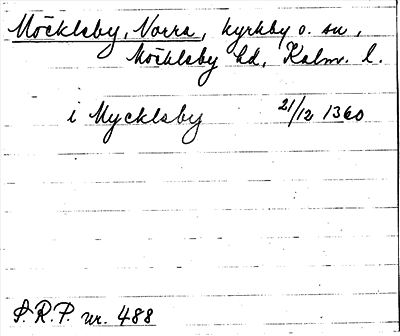 Möcklaby, Norra, kyrkby o. sn,
Möcklaby hd, Kalm. l.
i Mycklaby 21/12 1360
S.R.P. nr. 488